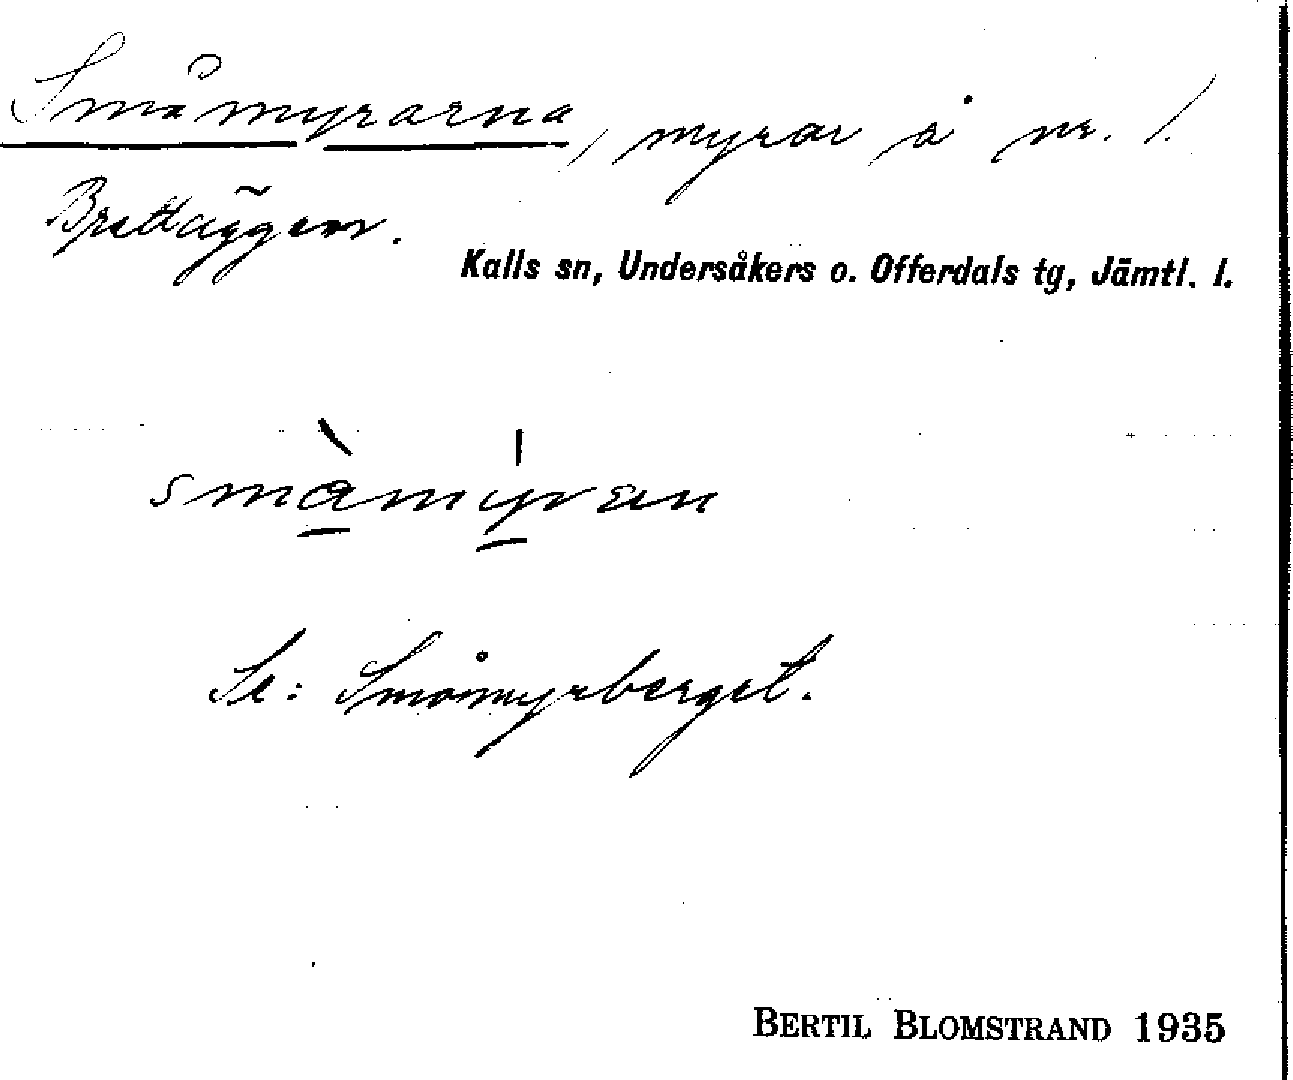 Småmyrarna, myrar å nr. 1.
Brattäggen.
Kalls sn, Undersåkers o. Offerdals tg, Jämtl. l.
småmyran
Se: Småmyrberget.
BERTIL BLOMSTRAND 1935